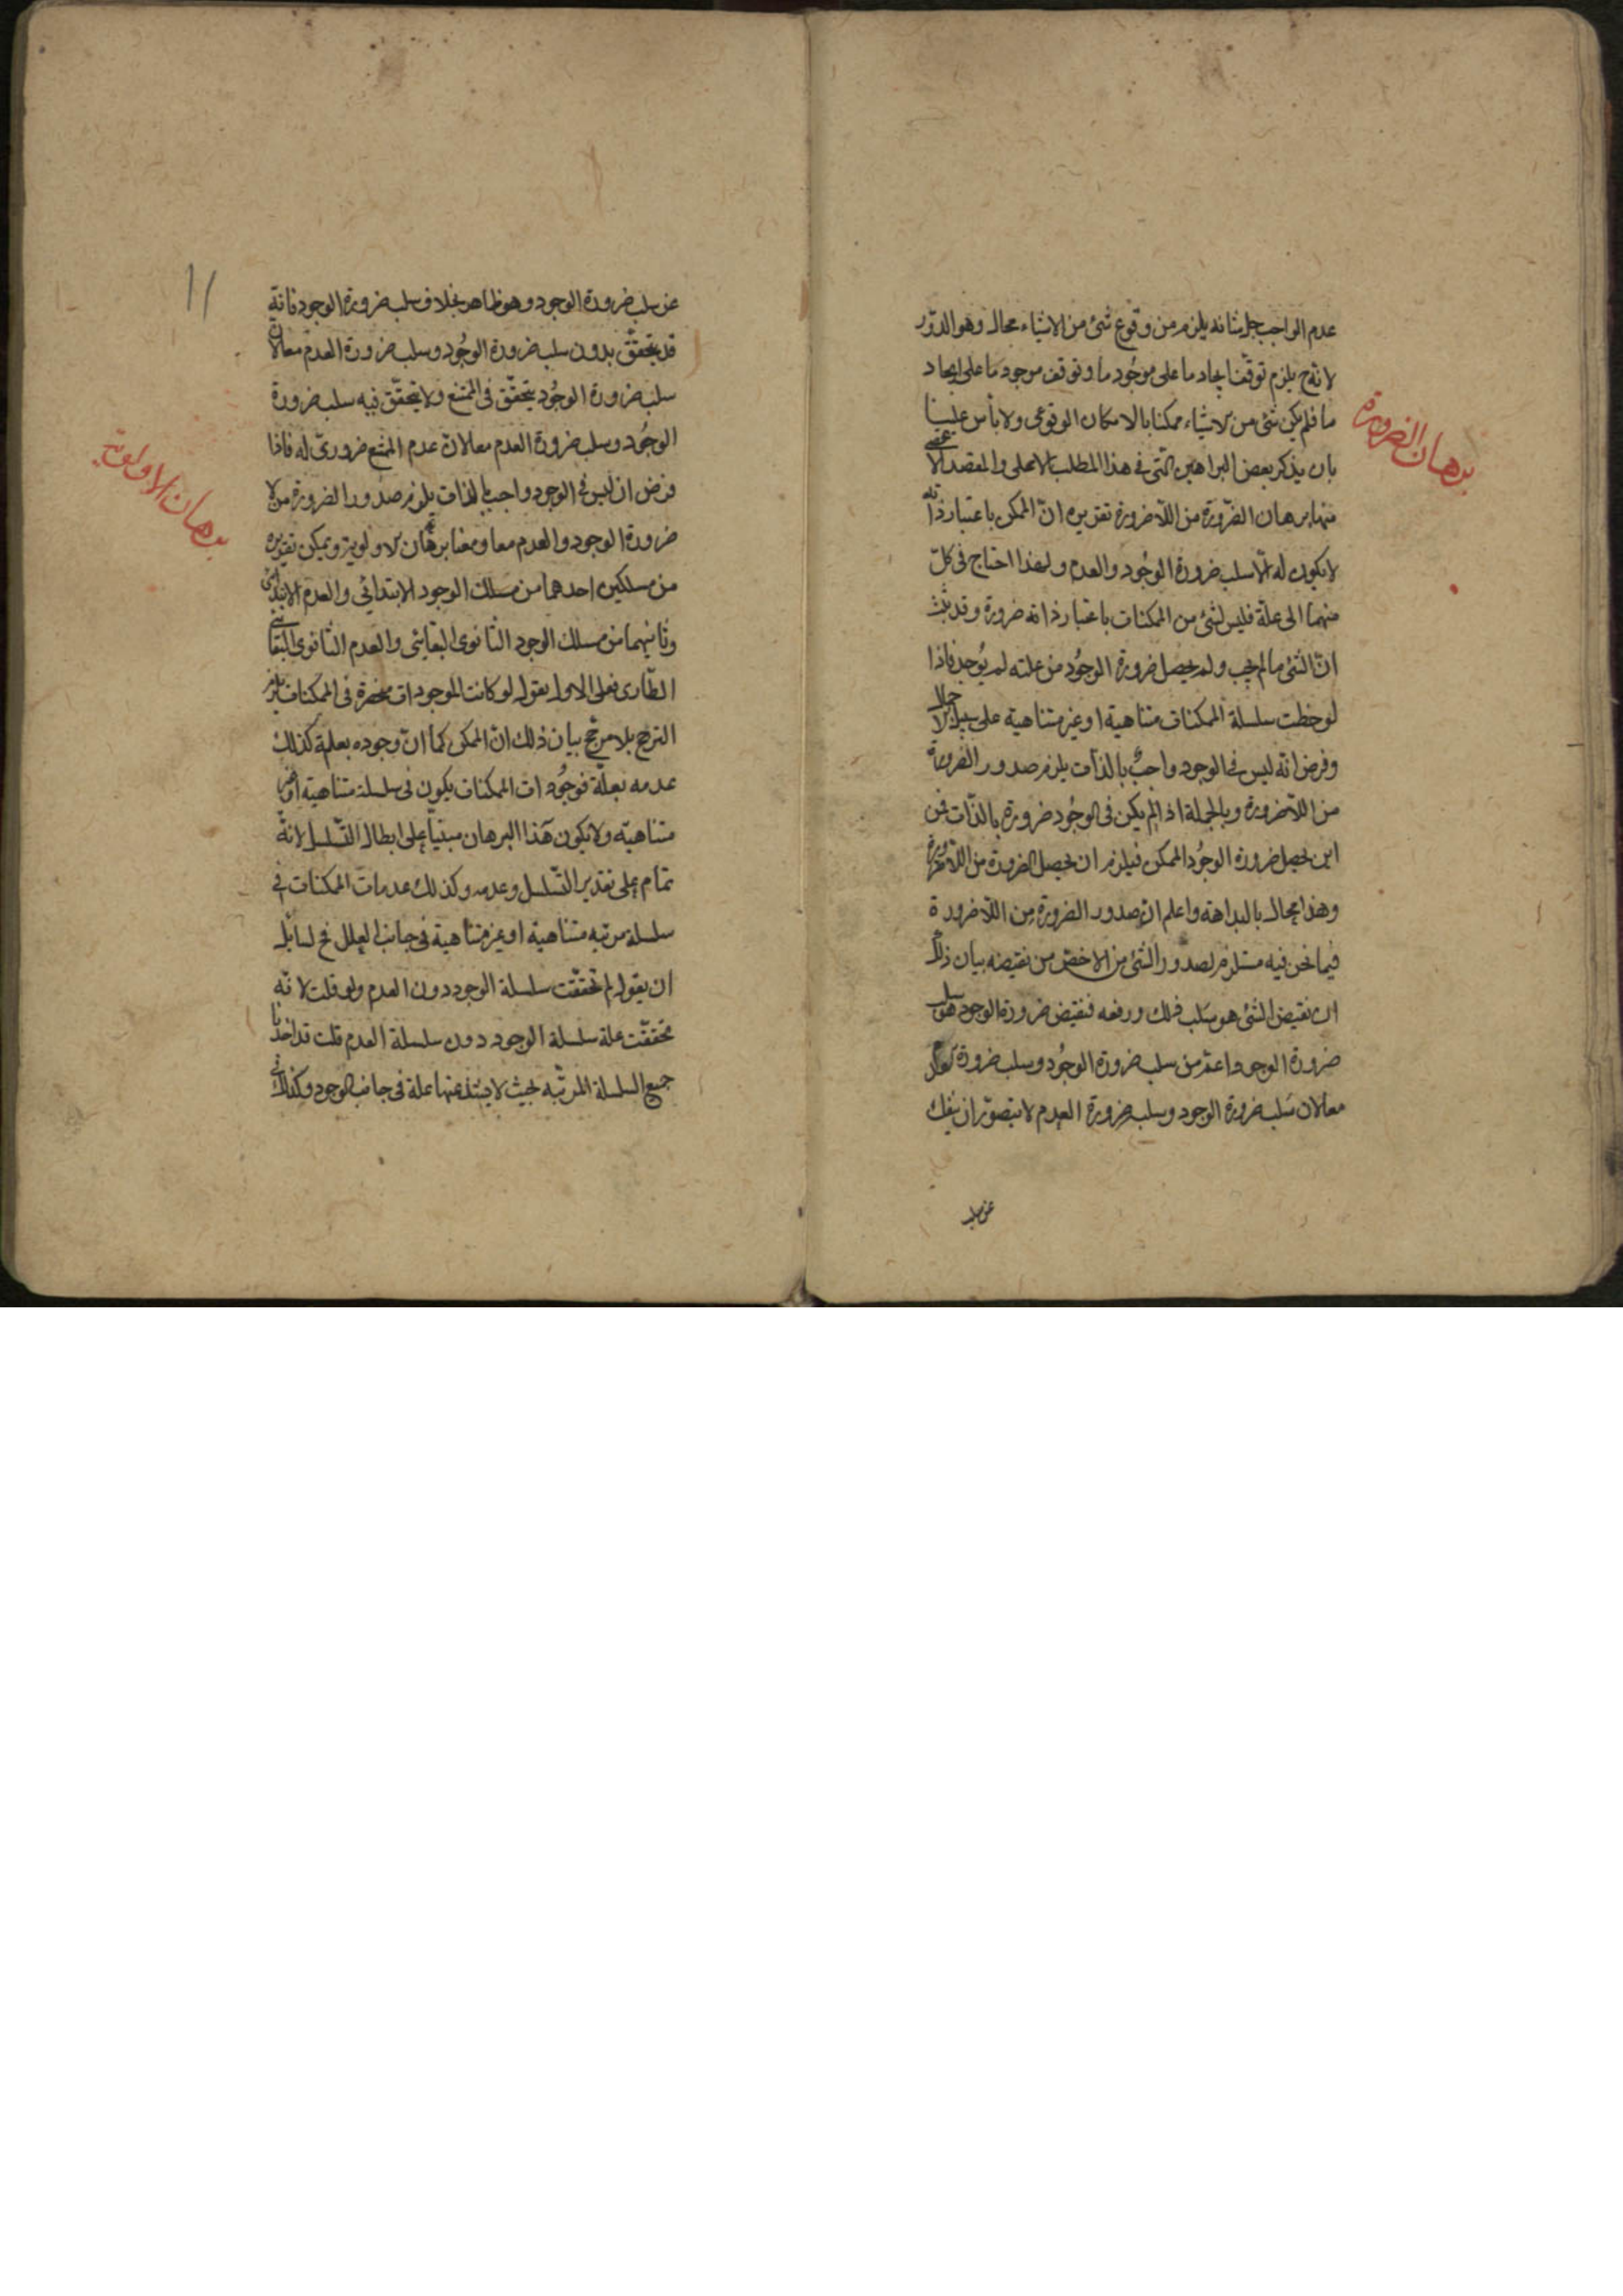 عدم الواجب جل شانه يلزم من وقوع شئ من الاشياء محال وهو الدّور
لانه ح يلزم توقف ايجاد ما على موجود ما وتوقف موجود ما على ايجاد
ما فلم يكن شئ من الاشياء ممكنا بالامكان الوقوعى ولا بأس علينا
بان يذكر بعض البراهين الّتى فى هذا المطلب الاعلى والمقصد الا
منها برهان الضّرورة من اللّاضرورة تقريره انّ الممكن باعتبار ذاته
لا يكون له الّا سلب ضرورة الوجُود والعدم ولهذا احتاج فى كلّ
منهما الى علّة فليس لشئ من الممكنات باعتبار ذاته ضرورة وقد ثبت
انّ الشئ ما لم يجب ولم يحصل ضرورة الوجُود من علته لم يُوجد فاذا
لوحظت سلسلة الممكنات متناهية او غير متناهية على سبيل الاجمال
وفرض انّه ليس فى الوجود واجبٌ بالذّات يلزم صدور الضرورة
من اللّاضرورة وبالجملة اذا لم يكن فى الوجُود ضرورة بالذّات فمن
اين يحصل ضرورة الوجُود الممكن فيلزم ان يحصل الضرورة من اللّاضرورة
وهذا محال بالبداهة واعلم انّ صدور الضرورة من اللّاضرورة
فيما نحن فيه مستلزم لصدور الشئ من الاخصّ من نقيضه بيان ذلك
ان نقيض الشئ هو سَلب ذلك ورفعه فنقيض ضرورة الوجود هو سلب
ضرورة الوجود واعمّ من سلب ضرورة الوجُود وسلب ضرورة العدم
معا لان سَلب ضرورة الوجود وسلب ضرورة العدم لا يتصوّر ان ينفك
عن سلب
برهان الضرورة
عن سلب ضرورة الوجود وهو ظاهر بخلاف سلب ضرورة الوجود فانه
قد يتحقّق بدون سلب ضرورة الوجُود وسلب ضرورة العدم معا لانّ
سلب ضرورة الوجُود يتحقّق فى الممتنع ولا يتحقّق فيه سلب ضرورة
الوجُود وسلب ضرورة العدم معا لانّ عدم الممتنع ضرورىّ له فاذا
فرض ان ليس فى الوجود واجب بالذات يلزم صدور الضرورة من لا
ضرورة الوجود والعدم معا ومنها برهان الاولوية ويمكن تقريره
من مسلكين احدهما من مسلك الوجود الابتدائى والعدم الابتدائى
وثانيهما من مسلك الوجود الثانوى البقائى والعدم الثانوى البقائى
الطّارى فعلى الاول يقول لو كانت الموجودات منحصرة فى الممكنات يلزم
الترجّح بلا مرجّح بيان ذلك انّ الممكن كما انّ وجوده بعلّة كذلك
عدمه بعلّة فوجُودات الممكنات يكون فى سلسلة متناهية او غير
متناهيّه ولا يكون هذا البرهان مبتنياً على ابطال التّسلسل لانّه
تمام على تقدير التّسلسل وعدمه وكذلك عدمات الممكنات فى
سلسلة مرتبه متناهية او غير متناهية فى جانب العلل فح لسائل
ان يقول لم تحققت سلسلة الوجود دون العدم ولو قلت لانّه
تحققّت علة سلسلة الوجود دون سلسلة العدم قلت قد اخذنا
جميع السلسلة المرتّبه بحيث لا يشذ عنها علة فى جانب الوجود وكذلك فى
برهان الاولوية
١١